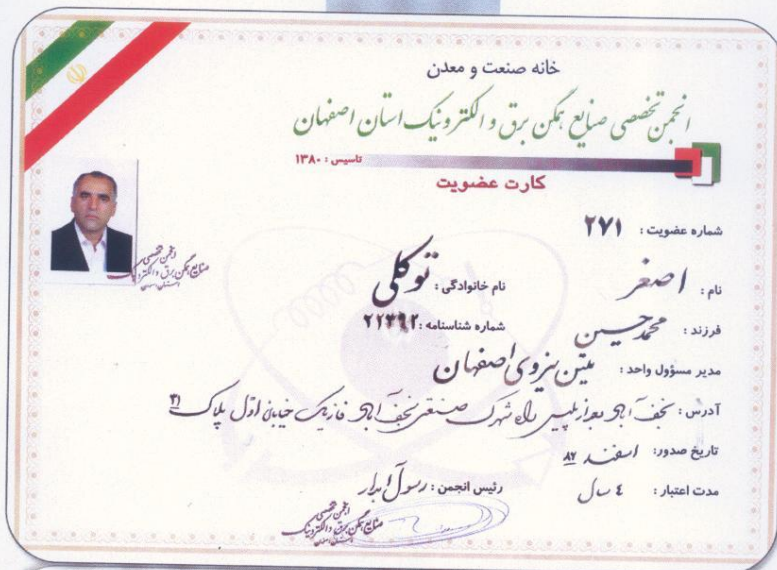 خانه صنعت و معدن
انجمن تخصصی صنایع همگن برق و الکترونیک استان اصفهان
تاسیس : ۱۳۸۰
کارت عضویت
شماره عضویت : ۲۷۱
نام : اصغر نام خانوادگی : توکلی
فرزند : محمدحسین شماره شناسنامه : ۲۲۳۹۲
مدیر مسؤول واحد : متین نیروی اصفهان
آدرس : نجف آباد بعد از پلیس راه شهرک صنعتی نجف آباد فاز یک خیابان اول پلاک ۳۱
تاریخ صدور: اسفند ۸۲
مدت اعتبار : ٤ سال رئیس انجمن : رسول ابرار
انجمن تخصصی
صنایع همگن برق و الکترونیک
استان اصفهان
انجمن تخصصی
صنایع همگن برق و الکترونیک
استان اصفهان